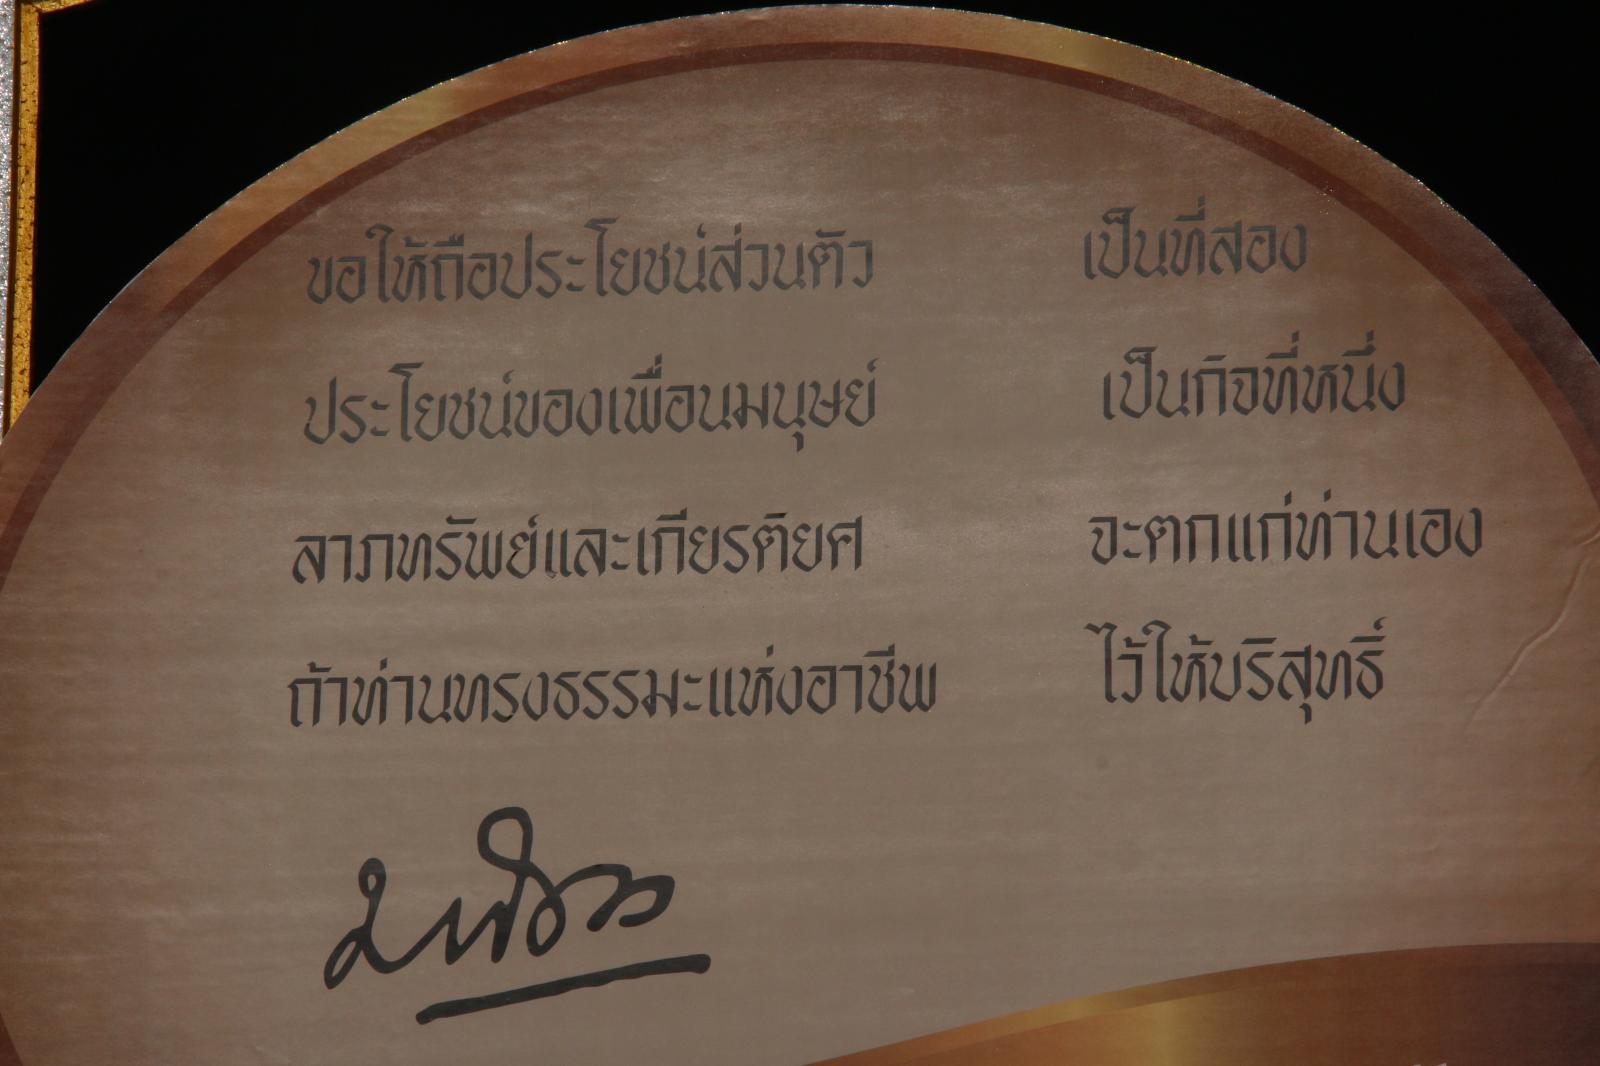 ขอให้ถือประโยชน์ส่วนตัว เป็นที่สอง
ประโยชน์ของเพื่อนมนุษย์ เป็นกิจที่หนึ่ง
ลาภทรัพย์และเกียรติยศ จะตกแก่ท่านเอง
ถ้าท่านทรงธรรมะแห่งอาชีพ ไว้ให้บริสุทธิ์